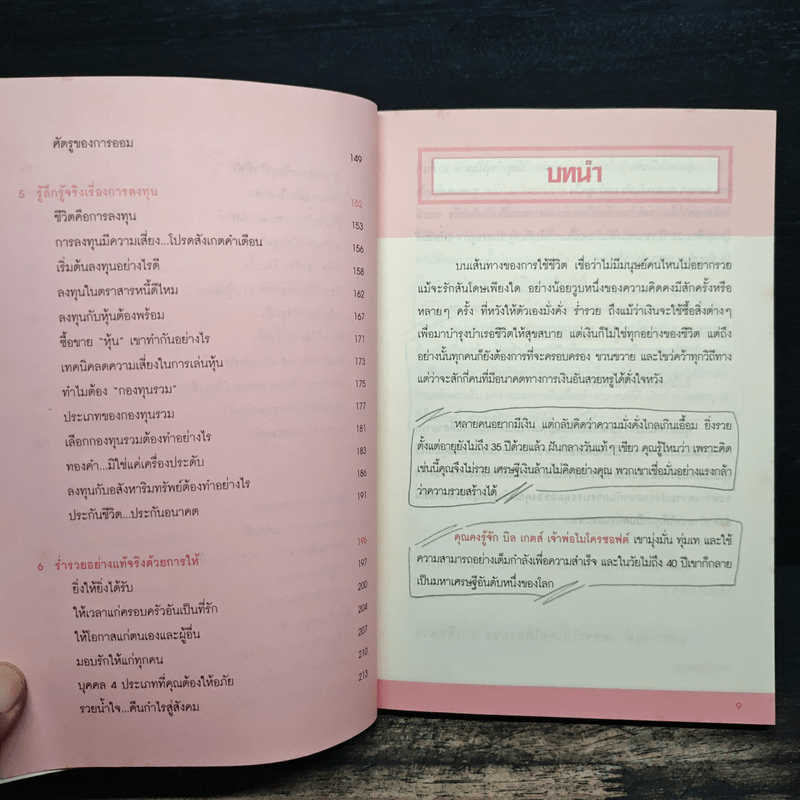 ศัตรูของการออม 149
5 รู้ลึกรู้จริงเรื่องการลงทุน 152
ชีวิตคือการลงทุน 153
การลงทุนมีความเสี่ยง...โปรดสังเกตคำเตือน 156
เริ่มต้นลงทุนอย่างไรดี 158
ลงทุนในตราสารหนี้ดีไหม 162
ลงทุนกับหุ้นต้องพร้อม 167
ซื้อขาย “หุ้น” เขาทำกันอย่างไร 171
เทคนิคลดความเสี่ยงในการเล่นหุ้น 173
ทำไมต้อง “กองทุนรวม” 175
ประเภทของกองทุนรวม 177
เลือกกองทุนรวมต้องทำอย่างไร 181
ทองคำ...มิใช่แค่เครื่องประดับ 183
ลงทุนกับอสังหาริมทรัพย์ต้องทำอย่างไร 186
ประกันชีวิต...ประกันอนาคต 191
6 ร่ำรวยอย่างแท้จริงด้วยการให้ 196
ยิ่งให้ยิ่งได้รับ 197
ให้เวลาแก่ครอบครัวอันเป็นที่รัก 200
ให้โอกาสแก่ตนเองและผู้อื่น 204
มอบรักให้แก่ทุกคน 207
บุคคล 4 ประเภทที่คุณต้องให้อภัย 210
รวยน้ำใจ...คืนกำไรสู่สังคม 213
บทนำ
บนเส้นทางของการใช้ชีวิต เชื่อว่าไม่มีมนุษย์คนไหนไม่อยากรวย
แม้จะรักสันโดษเพียงใด อย่างน้อยวูบหนึ่งของความคิดคงมีสักครั้งหรือ
หลายๆ ครั้ง ที่หวังให้ตัวเองมั่งคั่ง ร่ำรวย ถึงแม้ว่าเงินจะใช้ซื้อสิ่งต่างๆ
เพื่อมาบำรุงบำเรอชีวิตให้สุขสบาย แต่เงินก็ไม่ใช่ทุกอย่างของชีวิต แต่ถึง
อย่างนั้นทุกคนก็ยังต้องการที่จะครอบครอง ขวนขวาย และไขว่คว้าทุกวิถีทาง
แต่ว่าจะสักกี่คนที่มีอนาคตทางการเงินอันสวยหรูได้ดั่งใจหวัง
หลายคนอยากมีเงิน แต่กลับคิดว่าความมั่งคั่งไกลเกินเอื้อม ยิ่งรวย
ตั้งแต่อายุยังไม่ถึง 35 ปีด้วยแล้ว ฝันกลางวันแท้ๆ เชียว คุณรู้ไหมว่า เพราะคิด
เช่นนี้คุณจึงไม่รวย เศรษฐีเงินล้านไม่คิดอย่างคุณ พวกเขาเชื่อมั่นอย่างแรงกล้า
ว่าความรวยสร้างได้
คุณคงรู้จัก บิล เกตส์ เจ้าพ่อไมโครซอฟต์ เขามุ่งมั่น ทุ่มเท และใช้
ความสามารถอย่างเต็มกำลังเพื่อความสำเร็จ และในวัยไม่ถึง 40 ปีเขาก็กลาย
เป็นมหาเศรษฐีอันดับหนึ่งของโลก
9